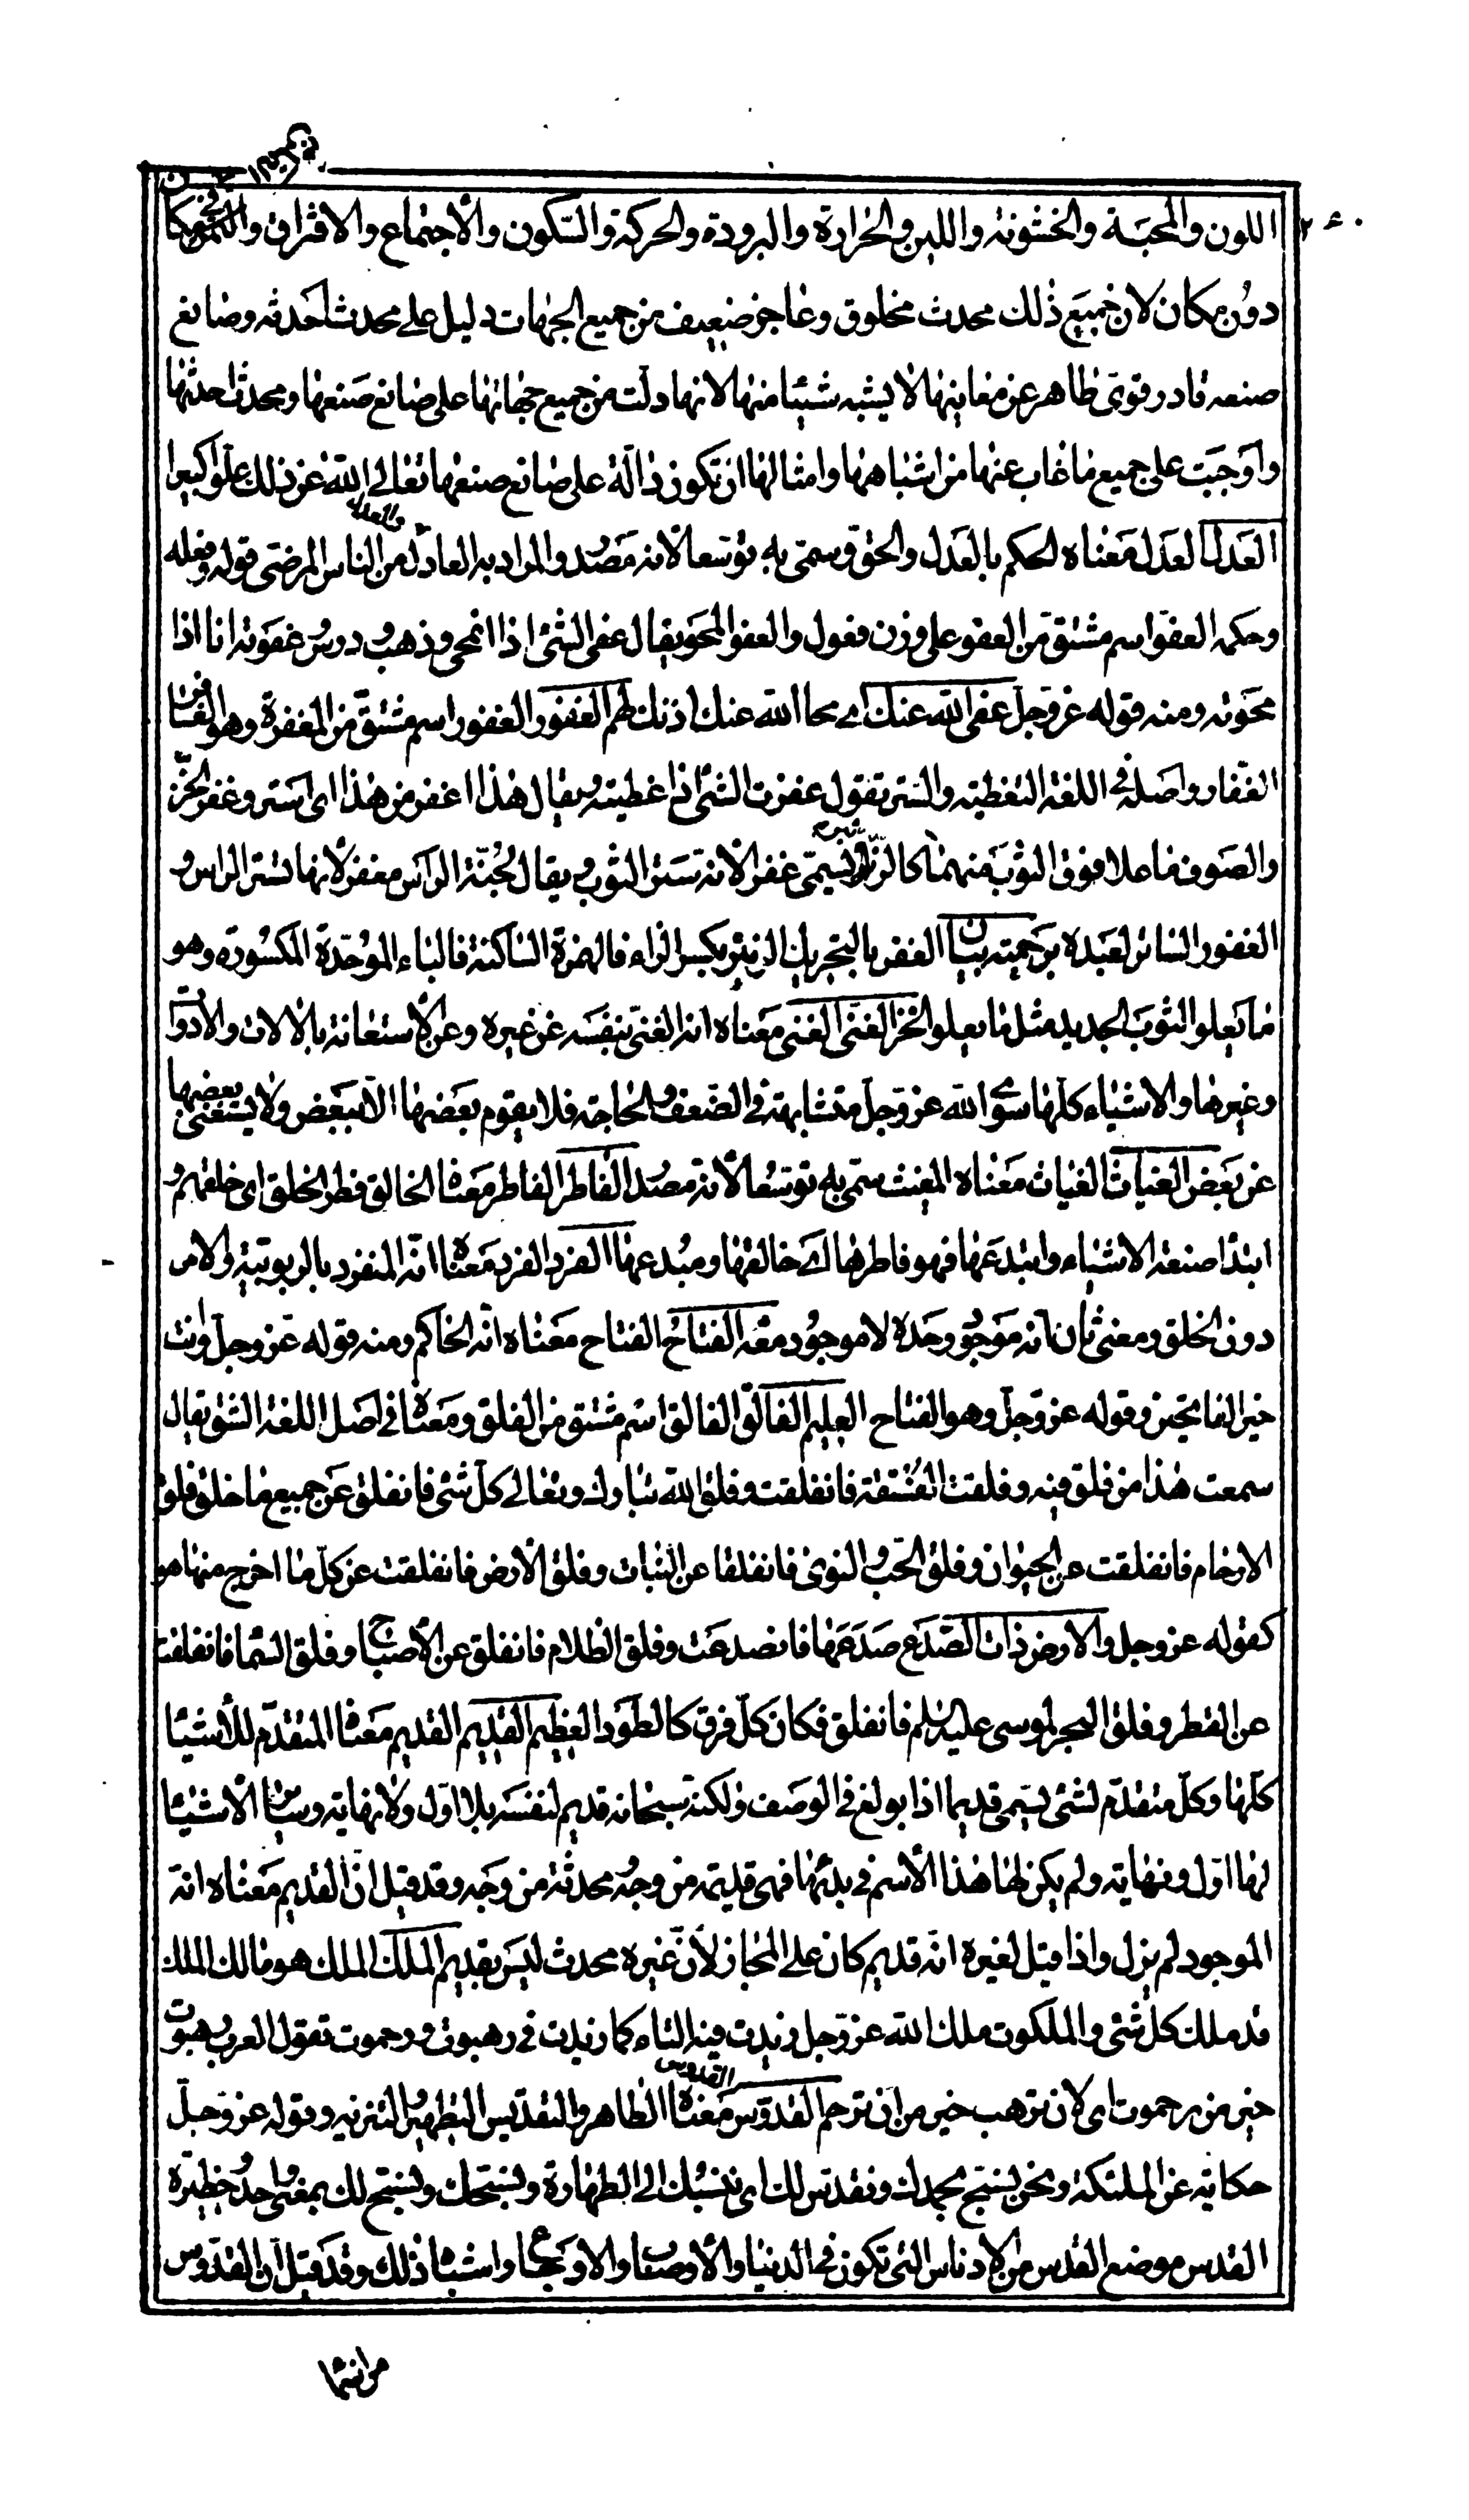 ٢٤٠
اللون والمجسة والخشونة واللين والحرارة والبرودة والحركة والسكون والاجتماع والافتراق والتمكن في مكان
دون مكان لان جميع ذلك محدث مخلوق وعاجز ضعيف من جميع الجهات دليل على محدث احدثه وصانع
صنعه قادر قوى ظاهر عن معانيها لا يشبه شيئا منها لانها دلت من جميع جهاتها على صانع صنعها ومحدث احدثها
واوجبت على جميع ما غاب عنها من اشباهها وامثالها ان تكون دالة على صانع صنعها تعالى الله عن ذلك علوا كبيرا
العدل العدل معناه الحكم بالعدل والحق وسمى به توسعا لانه مصدر والمراد به العادل والعدل من الناس المرضى قوله وفعله
وحكمه العفو اسم مشتق من العفو على وزن فعول والعفو المحو يقال عفى الشئ اذا انمحى وذهب ودرس وعفوته انا اذا
محوته ومنه قوله عز وجل عفى الله عنك اى محا الله عنك اذنك لهم الغفور الغفور اسم مشتق من المغفرة وهو الغافر
الغفار واصله فى اللغة التغطية والستر تقول غفرت الشئ اذا غطيته ويقال هذا اغفر من هذا اى استر وغفر الخز
والصوف ما علا فوق الثوب منهما كالزئبر يسمى غفرا لانه ستر الثوب ويقال لجنة الراس مغفر لانها تستر الراس و
الغفور الساتر لعبده برحمته بيان الغفر بالتحريك الزئبر بكسر الزاء فالهمزة الساكنة فالباء الموحدة المكسورة وهو
ما يعلو الثوب الجديد مثل ما يعلو الخز الغنى الغنى معناه انه الغنى بنفسه عن غيره وعن الاستعانة بالالات والادوات
وغيرها والاشياء كلها سوى الله عز وجل متشابهة فى الضعف والحاجة فلا يقوم بعضها الا ببعض ولا يستغنى بعضها
عن بعض الغياث الغياث معناه المغيث سمى به توسعا لانه مصدر الفاطر الفاطر معناه الخالق فطر الخلق اى خلقهم و
ابتدا صنعة الاشياء وابتدعها فهو فاطرها اى خالقها ومبدعها الفرد الفرد معناه انه المنفرد بالربوبية والامر
دون الخلق ومعنى ثان انه موجود وحده لا موجود معه الفتاح الفتاح معناه انه الحاكم ومنه قوله عز وجل وانت
خير الفاتحين وقوله عز وجل وهو الفتاح العليم الفالق الفالق اسم مشتق من الفلق ومعناه فى اصل اللغة الشق يقال
سمعت هذا من فلق فيه وفلقت الفستقة فانفلقت وفلق الله تبارك وتعالى كل شئ فانفلق عن جميع ما خلق فلق
الارحام فانفلقت عن الحيوان وفلق الحب والنوى فانفلقا عن النبات وفلق الارض فانفلقت عن كل ما اخرج منها هو
كقوله عز وجل والارض ذات الصدع صدعها فانصدعت وفلق الظلام فانفلق عن الاصباح وفلق السماء فانفلقت
عن القطر وفلق البحر لموسى عليه السلم فانفلق فكان كل فرق كالطود العظيم القديم القديم معناه المتقدم للاشياء
كلها وكل متقدم لشئ يسمى قديما اذا بولغ فى الوصف ولكنه سبحانه قديم لنفسه بلا اول ولا نهاية وسائر الاشياء
لها اول ونهاية ولم يكن لها هذا الاسم فى بدئها فهى قديمة من وجه محدثة من وجه وقد قيل ان القديم معناه انه
الموجود لم يزل واذا قيل لغيره انه قديم كان على المجاز لان غيره محدث ليس بقديم الملك الملك هو مالك الملك
قد ملك كل شئ والملكوت ملك الله عز وجل زيدت فيه التاء كما زيدت فى رهبوت ورحموت تقول العرب رهبوت
خير من رحموت اى لان ترهب خير من ان ترحم القدوس القدوس معناه الطاهر والتقديس التطهير والتنزيه وقوله عز وجل
حكاية عن الملئكة ونحن نسبح بحمدك ونقدس لك اى ننسبك الى الطهارة ونسبحك ونسبح لك بمعنى واحد وحظيرة
القدس موضع القدس من الادناس التى تكون فى الدنيا والاوصاب والاوجاع واشباه ذلك وقد قيل ان القدوس
من اسماء